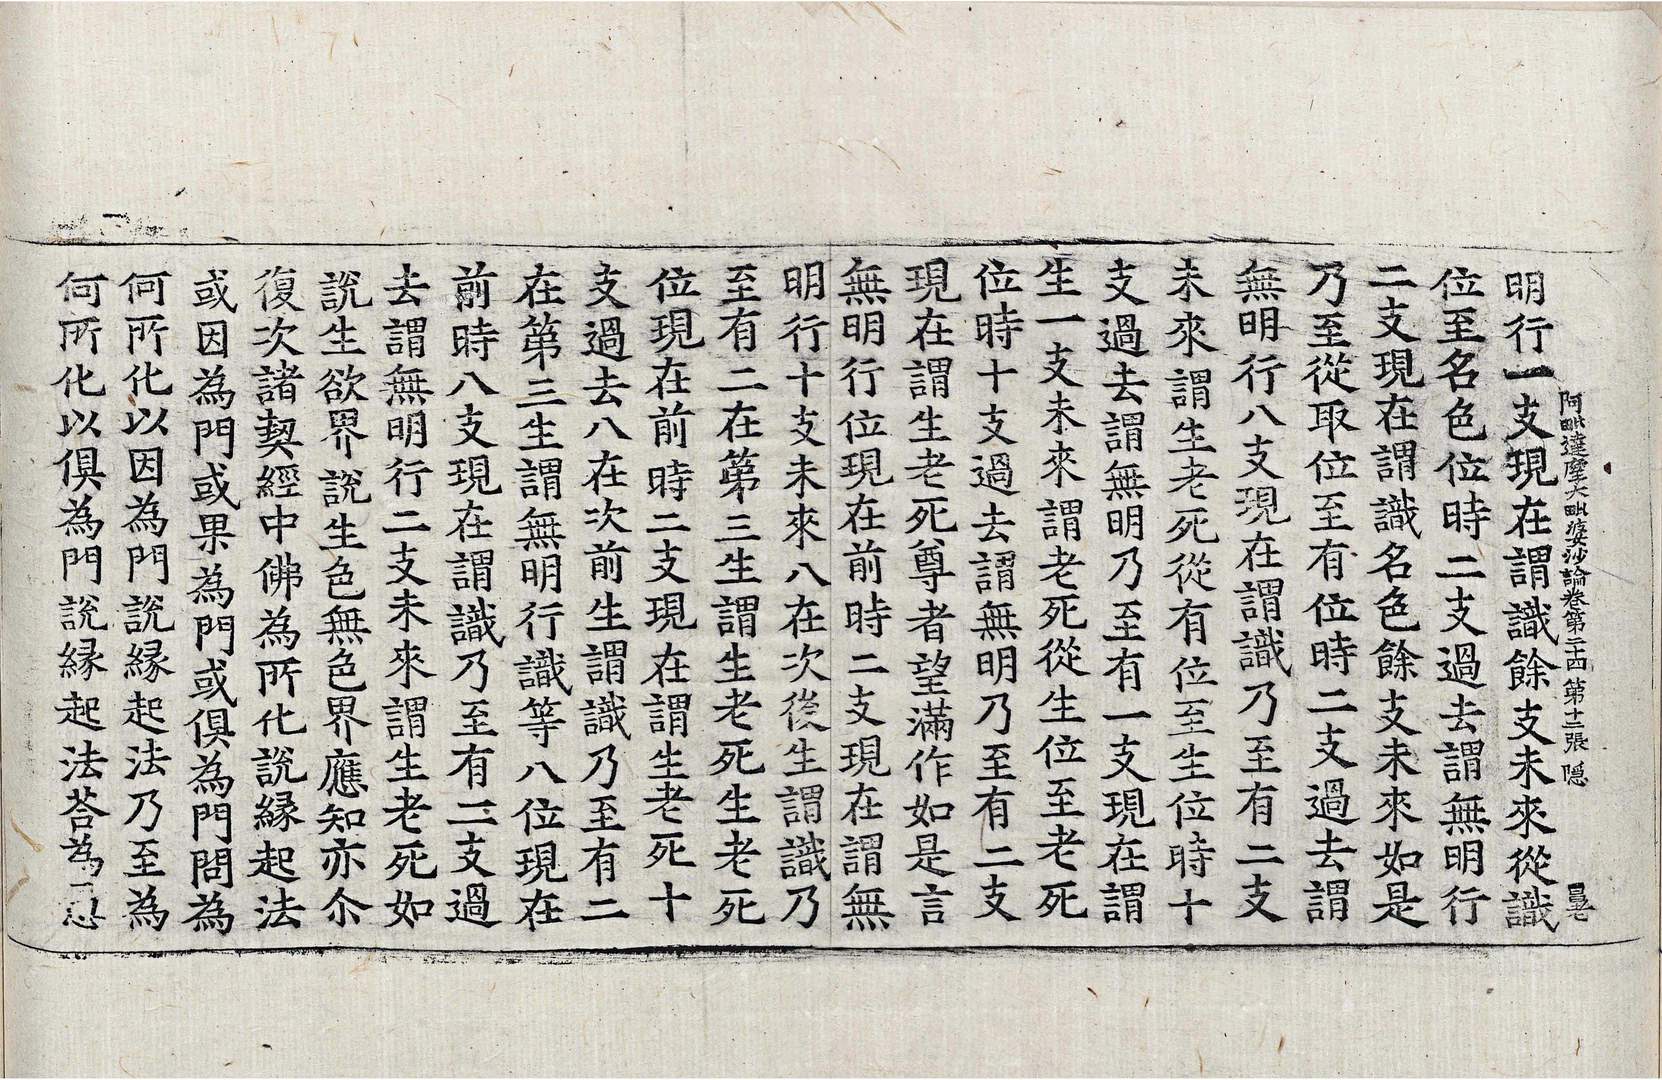 阿毗達摩大毗婆沙論卷第二十四 第十二張 隱
明行一支現在謂識餘支未來從識
位至名色位時二支過去謂無明行
二支現在謂識名色餘支未來如是
乃至從取位至有位時二支過去謂
無明行八支現在謂識乃至有二支
未來謂生老死從有位至生位時十
支過去謂無明乃至有一支現在謂
生一支未來謂老死從生位至老死
位時十支過去謂無明乃至有二支
現在謂生老死尊者望滿作如是言
無明行位現在前時二支現在謂無
明行十支未來八在次後生謂識乃
至有二在第三生謂生老死生老死
位現在前時二支現在謂生老死十
支過去八在次前生謂識乃至有二
在第三生謂無明行識等八位現在
前時八支現在謂識乃至有二支過
去謂無明行二支未來謂生老死如
說生欲界說生色無色界應知亦尒
復次諸契經中佛為所化說緣起法
或因為門或果為門或俱為門問為
何所化以因為門說緣起法乃至為
何所化以俱為門說緣起法荅為